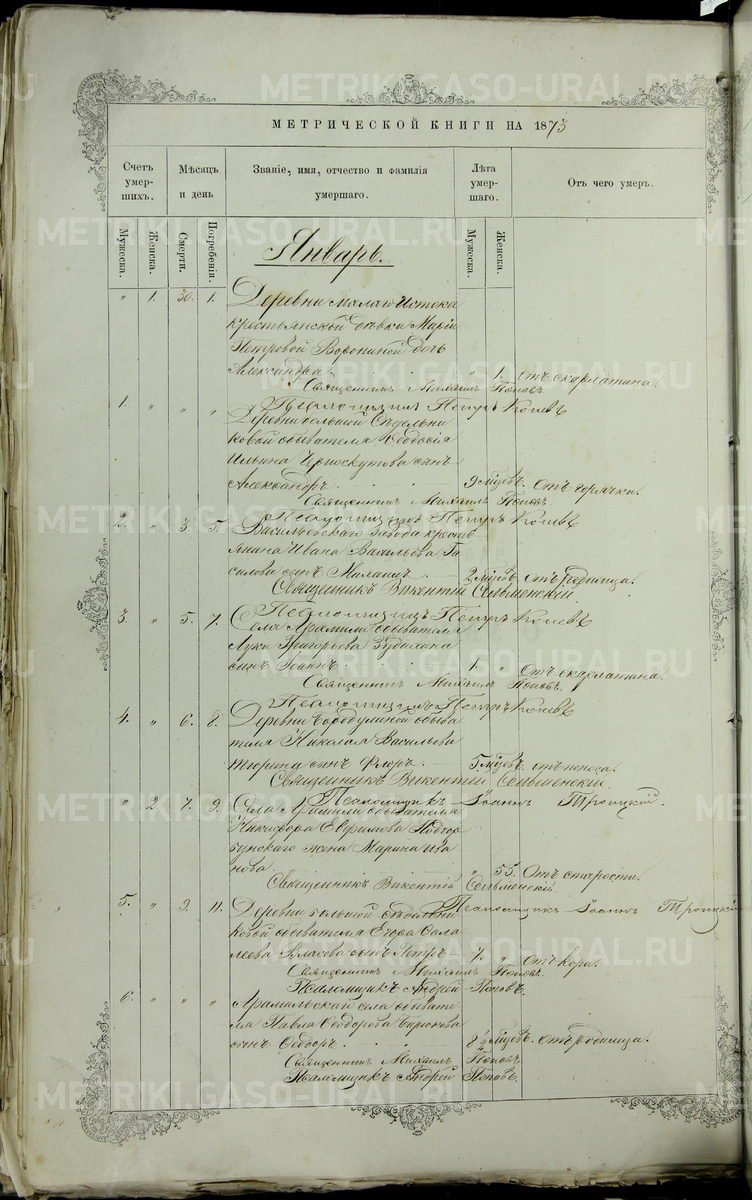 МЕТРИЧЕСКОЙ КНИГИ НА 1873
Счетъ умер-шихъ.
Мѣсяцъ и день
Званіе, имя, отчество и фамилія умершаго.
Лѣта умер-шаго.
Отъ чего умеръ.
Мужеска. Женска. Смерти. Погребенія. Мужеска. Женска.
Январь.
" 1. 30. 1. Деревни Малаго Истока
крестьянской дѣвки Маріи
Петровой Ворониной дочь
Александра. " 1. Отъ скарлатина.
Священникъ Михаилъ Поповъ.
Псаломщикъ Петръ
1. " " " Деревни большой Сѣдельни
ковой обывателя Ѳеодосія
Ильина Черноскутова сынъ
Александръ. 9 мѣсцевъ. Отъ горячки.
Священникъ Михаилъ Поповъ
Псаломщикъ Петръ
2. " 3. 5. Васильевскаго завода кресть
янина Ивана Васильева
сынъ 2 мѣсцевъ. отъ родимца.
Священникъ Викентій Сельменскій
Псаломщикъ Петръ
3. " 5. 7. Села Арамили обывателя
Луки Григорьева
сынъ Іоаннъ. 1. " Отъ скарлатина.
Священникъ Михаилъ Поповъ.
Псаломщикъ Петръ
4. " 6. 8. Деревни Бородулиной обыва
теля Николая Васильева
сынъ Флоръ. 5 мѣсцевъ. отъ поноса.
Священникъ Викентій Сельменскій
Псаломщикъ Іоаннъ Троицкій.
" 2. 7. 9. Села Арамили обывателя
Никифора Евфимова Подгор
бунскаго жена Марина Ива
нова. " 55. Отъ старости.
Священникъ Викентій Сельменскій.
Псаломщикъ Іоаннъ Троицкій
5. " 9. 11. Деревни большой сѣдельни
ковой обывателя Егора
Власова сынъ Петръ 7. " Отъ кори.
Священникъ Михаилъ Поповъ.
Псаломщикъ Андрей Поповъ.
6. " " " Арамильскаго села обывате
ля Павла Ѳеодорова Бирюкова
сынъ Ѳеодоръ. 8½ мѣсцевъ. отъ родимца.
Священникъ Михаилъ Поповъ
Псаломщикъ Андрей Поповъ.
METRIKI.GASO-URAL.RU